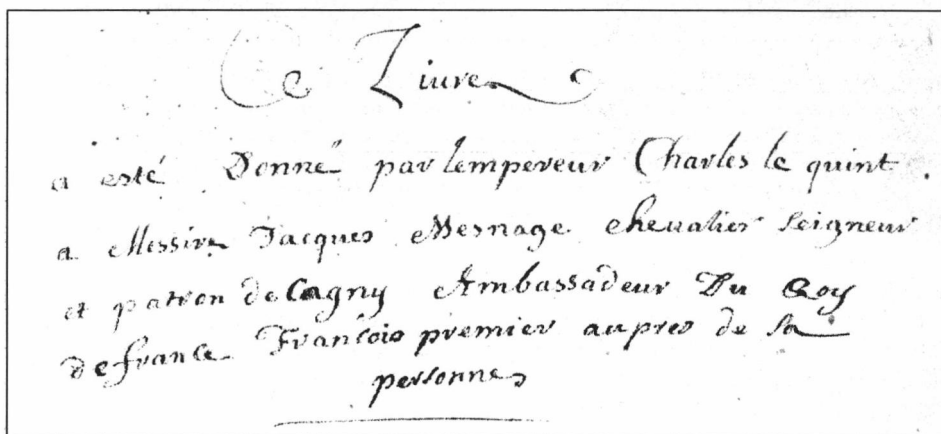 Ce Liure
a esté Donné par lempereur Charles le quint.
a Messire Jacques Mesnage chevalier seigneur
et patron de Cagny Ambassadeur Du Roy
de france François premier aupres de sa
personne